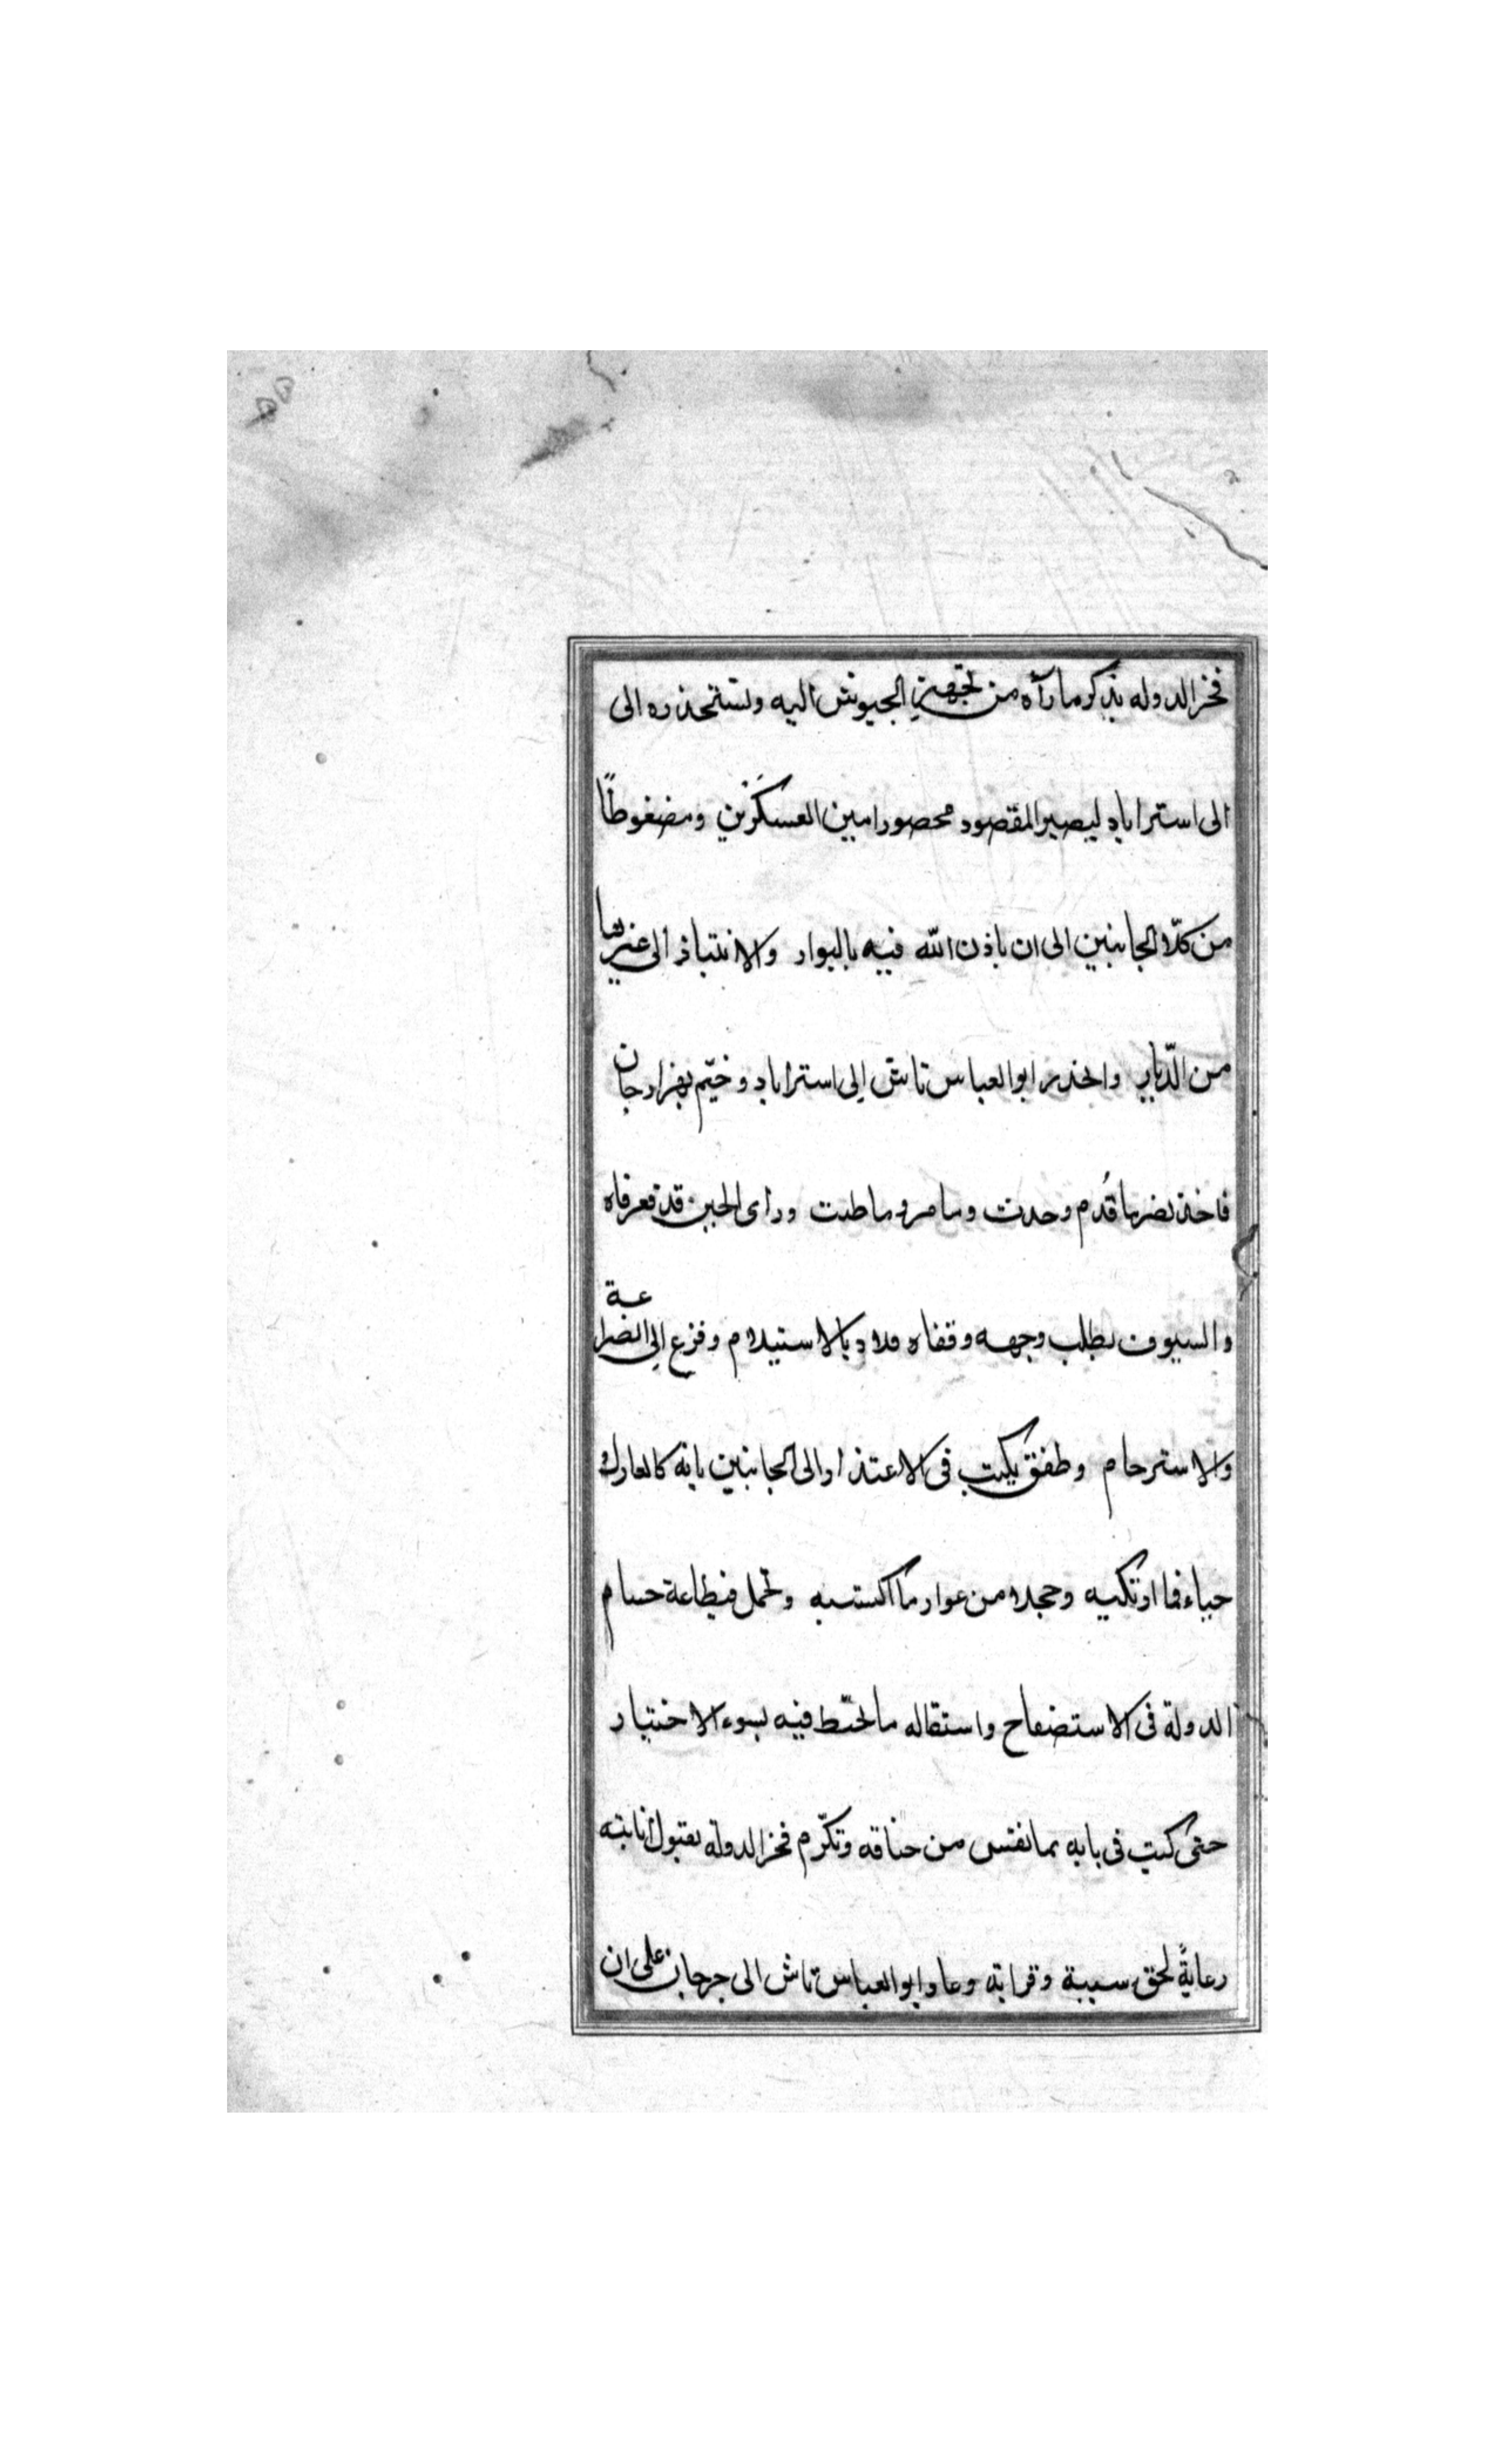 فخر الدوله بذكر ما رآه من تجهيز الجيوش اليه وتستحذره الى
الى استراباد ليصير المقصود محصورا مبين العسكرين ومضغوطًا
من كلّا الجانبين الى ان ياذن الله فيه بالبوار والانتباذ الى غيرها
من الدّيار وانحدر ابو العباس تاش الى استراباد وخيّم بهزارجان
فاخذ نصر ما قُدم وحدث وسامر وماطت وراى الحين قد فعرفاه
والسيوف تطلب وجهه وقفاه ولاد بالاستيلام وفزع الى الضراعة
والاسترحام وطفق يكتب فى الاعتذار والى الجانبين بانه كالعارك
حياء فما ارتكبه وحجلا من عوار ما اكتسبه وتحمل فيطاعة حسام
الدولة فى الاستصفاح واستقاله مالحتّط فيه بسوء الاختيار
حتى كتب فى بابه بما نفس من خناقه وتكرّم فخر الدولة بقبول انابته
رعايةً لحق سببة وقرابة وعاد ابو العباس تاش الى جرجان على ان